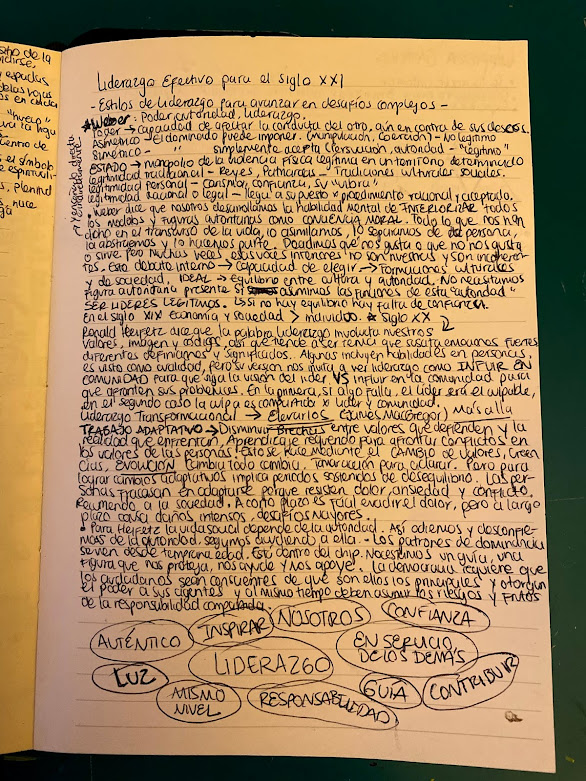 sitio de la
"hueco"
centro de
el símbolo
Liderazgo Efectivo para el siglo XXI
- Estilos de liderazgo para avanzar en desafíos complejos -
* Weber: Poder, autoridad, liderazgo.
Poder → Capacidad de afectar la conducta del otro, aún en contra de sus deseos.
Asimétrico - El dominado puede imponer. (Manipulación, Coerción) - No legítimo
Simétrico - " simplemente acepta (Persuación, autoridad - "legítimo"
ESTADO → monopolio de la violencia física legítima en un territorio determinado
legitimidad tradicional - Reyes, Patriarcas - Tradiciones culturales sociales.
legitimidad personal - Carisma, confianza, su "vibra"
legitimidad racional o legal - llegó a su puesto x procedimiento racional y aceptado.
- Weber dice que nosotros desarrollamos la habilidad mental de INTERIORIZAR todos
los modelos y figuras autoritarias como CONCIENCIA MORAL. Todo lo que nos han
dado en el transcurso de la vida, lo asimilamos, lo separamos de la persona,
la abstraemos y lo hacemos parte. Decidimos que nos gusta o que no nos gusta
o sirve pero muchas veces, esas voces interiores no son nuestras y son incoheren-
tes. Este debate interno → Capacidad de elegir → Formaciones culturales
y de sociedad. IDEAL → Equilibrio entre cultura y autoridad. No necesitamos
figura autoritaria presente si asimilamos las funciones de esta autoridad
SER LIDERES LEGÍTIMOS. Es si no hay equilibrio hay falta de confianza.
En el siglo XIX economía y sociedad > individuo. * Siglo XX
Ronald Heifetz dice que la palabra liderazgo involucra nuestros
valores, imagen y códigos, así que tiende a ser tema que suscita emociones fuertes,
diferentes definiciones y significados. Algunas incluyen habilidades en personas,
es visto como cualidad, pero su versión nos invita a ver liderazgo como INFLUIR EN
COMUNIDAD para que siga la visión del líder VS influir en la comunidad para
que afronten sus problemas. En la primera, si algo falla, el líder será el culpable,
en el segundo caso la culpa es compartida x líder y comunidad.
Liderazgo Transformacional → Elevarlos (James MacGregor) Más allá
TRABAJO ADAPTATIVO → Disminuir Brechas entre valores que defienden y la
realidad que enfrentan, Aprendizaje requerido para afrontar conflictos en
los valores de las personas! Esto se hace mediante el CAMBIO de Valores, Creen
cias, EVOLUCIÓN Cambia todo cambia. Tanaración para aclarar. Pero para
lograr cambios adaptativos implica periodos sostenidos de desequilibrio. Las per-
sonas fracasan en adaptarse porque resisten dolor, ansiedad y conflicto.
Recurriendo a la soledad. A corto plazo es fácil evadir el dolor, pero a largo
plazo causa daños intensos, desafíos mayores.
* Para Heifetz la vida social depende de la autoridad. Así odiemos y desconfie-
mos de la autoridad, seguimos acudiendo a ella. - Los patrones de dominancia
se ven desde temprana edad. Está dentro del chip. Necesitamos un guía, una
figura que nos proteja, nos ayude y nos apoye. La democracia requiere que
los ciudadanos sean conscientes de que son ellos los principales y otorgan
el poder a sus agentes y al mismo tiempo deben asumir los riesgos y frutos
de la responsabilidad compartida.
AUTÉNTICO INSPIRAR NOSOTROS CONFIANZA
LIDERAZGO EN SERVICIO
DE LOS DEMÁS
LUZ MISMO
NIVEL RESPONSABILIDAD GUÍA CONTRIBUIR